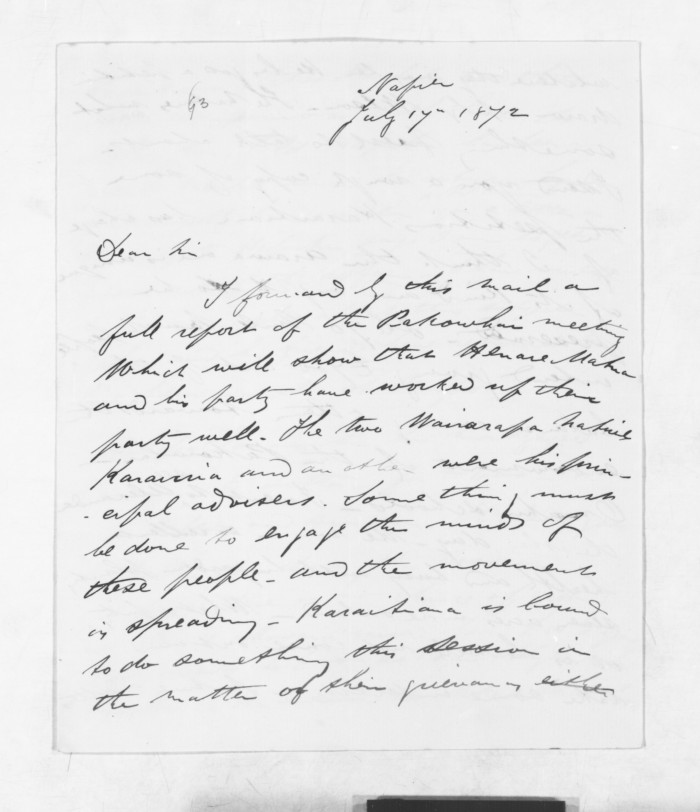 Napier
July 17th 1872
Dear Sir
I forward by this mail a
full report of the Pakowhai meeting
Which will show that Henare Matua
and his party have worked up their
party well - The two Wairarapa natives
and another were his prin-
-cipal advisers. Something must
be done to engage the minds of
these people - and the movement
is spreading - Karaitiana is bound
to do something this session in
the matter of their grievances either